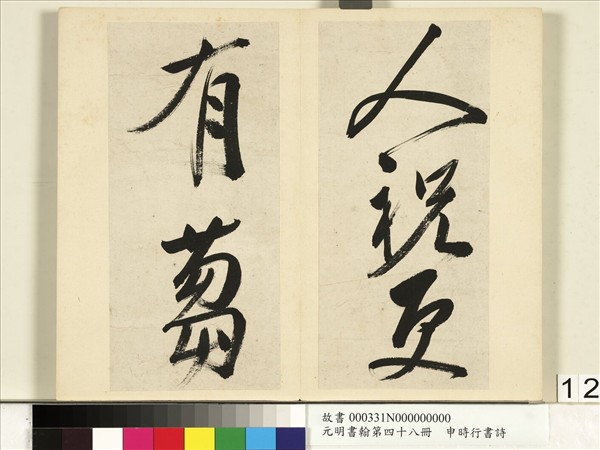 人祝更
有芻
12
故書 000331N000000000
元明書翰第四十八冊 申時行書詩